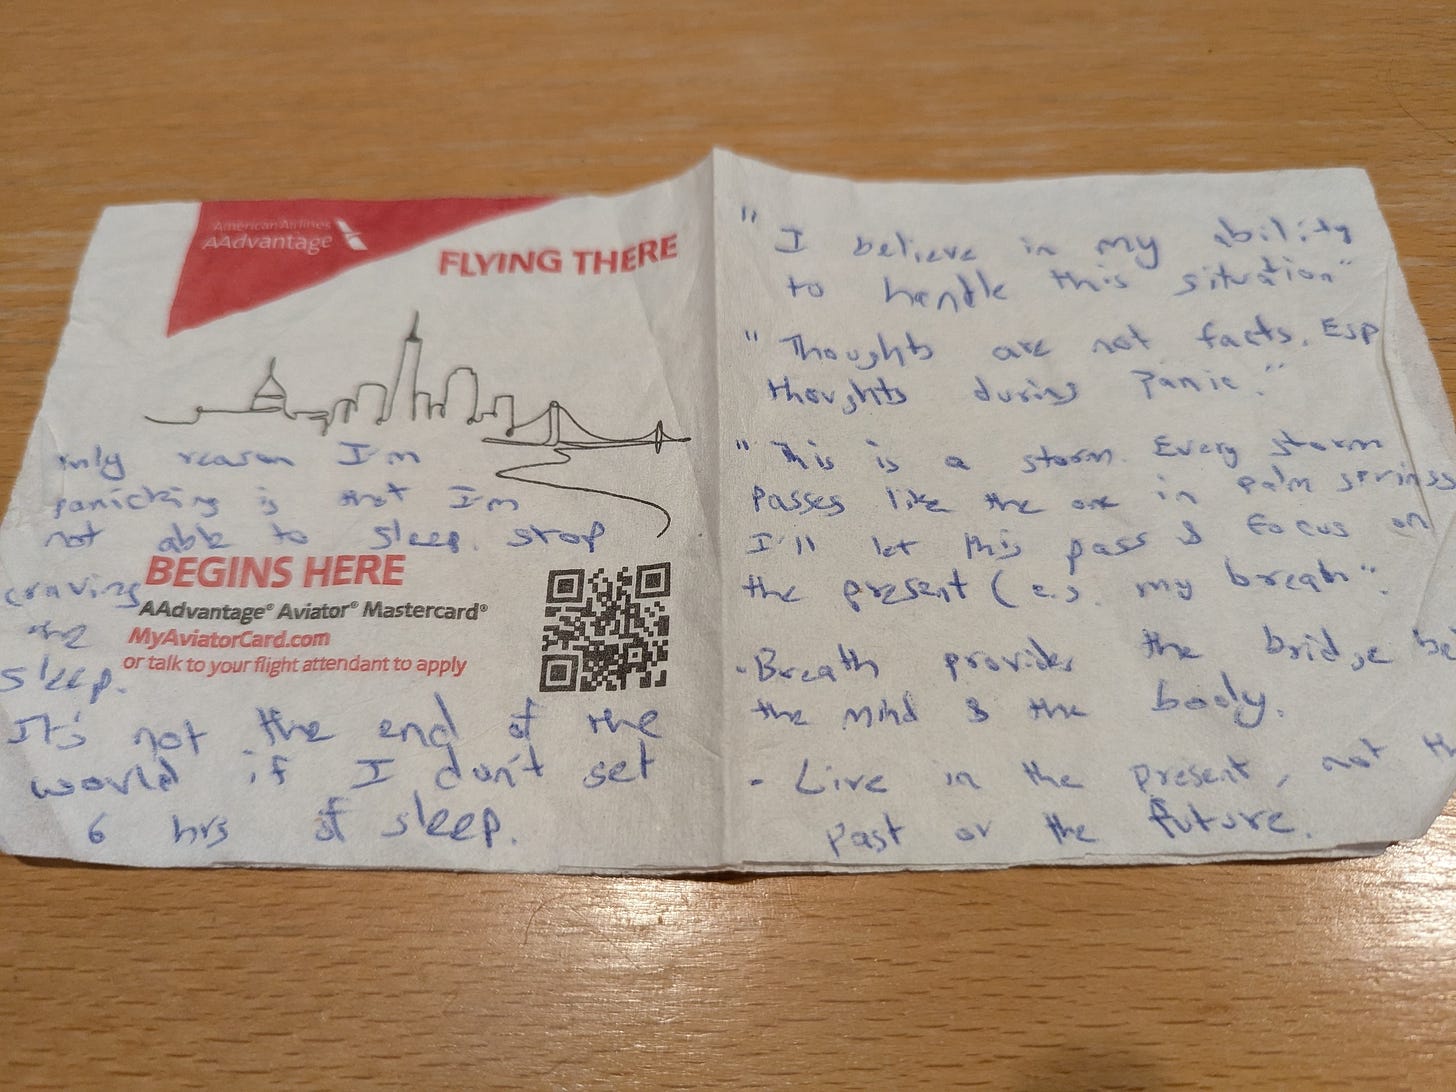 American Airlines
AAdvantage
FLYING THERE
only reason I'm
panicking is that I'm
not able to sleep. stop
craving
the
sleep.
BEGINS HERE
AAdvantage® Aviator® Mastercard®
MyAviatorCard.com
or talk to your flight attendant to apply
It's not the end of the
world if I don't get
6 hrs of sleep.
" I believe in my ability
to handle this situation"
" Thoughts are not facts. Esp
thoughts during panic."
" This is a storm. Every storm
passes like the one in Palm Springs
I'll let this pass & focus on
the present (e.g. my breath".
- Breath provides the bridge be
the mind & the body.
- Live in the present, not th
past or the future.